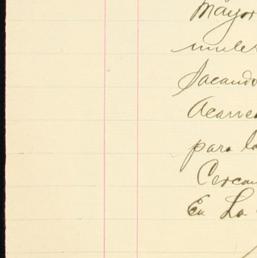 Mayor
mule
Sacando
Acarre
para la
Cercan
En La